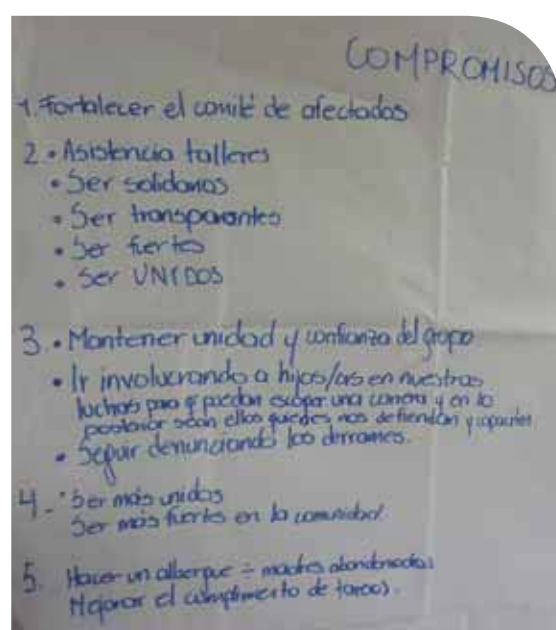 COMPROMISOS
1. Fortalecer el comité de afectados
2. • Asistencia talleres
• Ser solidarios
• Ser transparantes
• Ser fuertes
• Ser UNIDOS
3. • Mantener unidad y confianza del grupo
• Ir involucrando a hijos/as en nuestras
luchas para q puedan escoger una carrera y en lo
posterior sean ellos quienes nos defiendan y
• Seguir denunciando los derrames.
4. • Ser más unidos
Ser más fuertes en la comunidad
5. Hacer un albergue = madres abandonadas
Mejorar el cumplimiento de tareas.